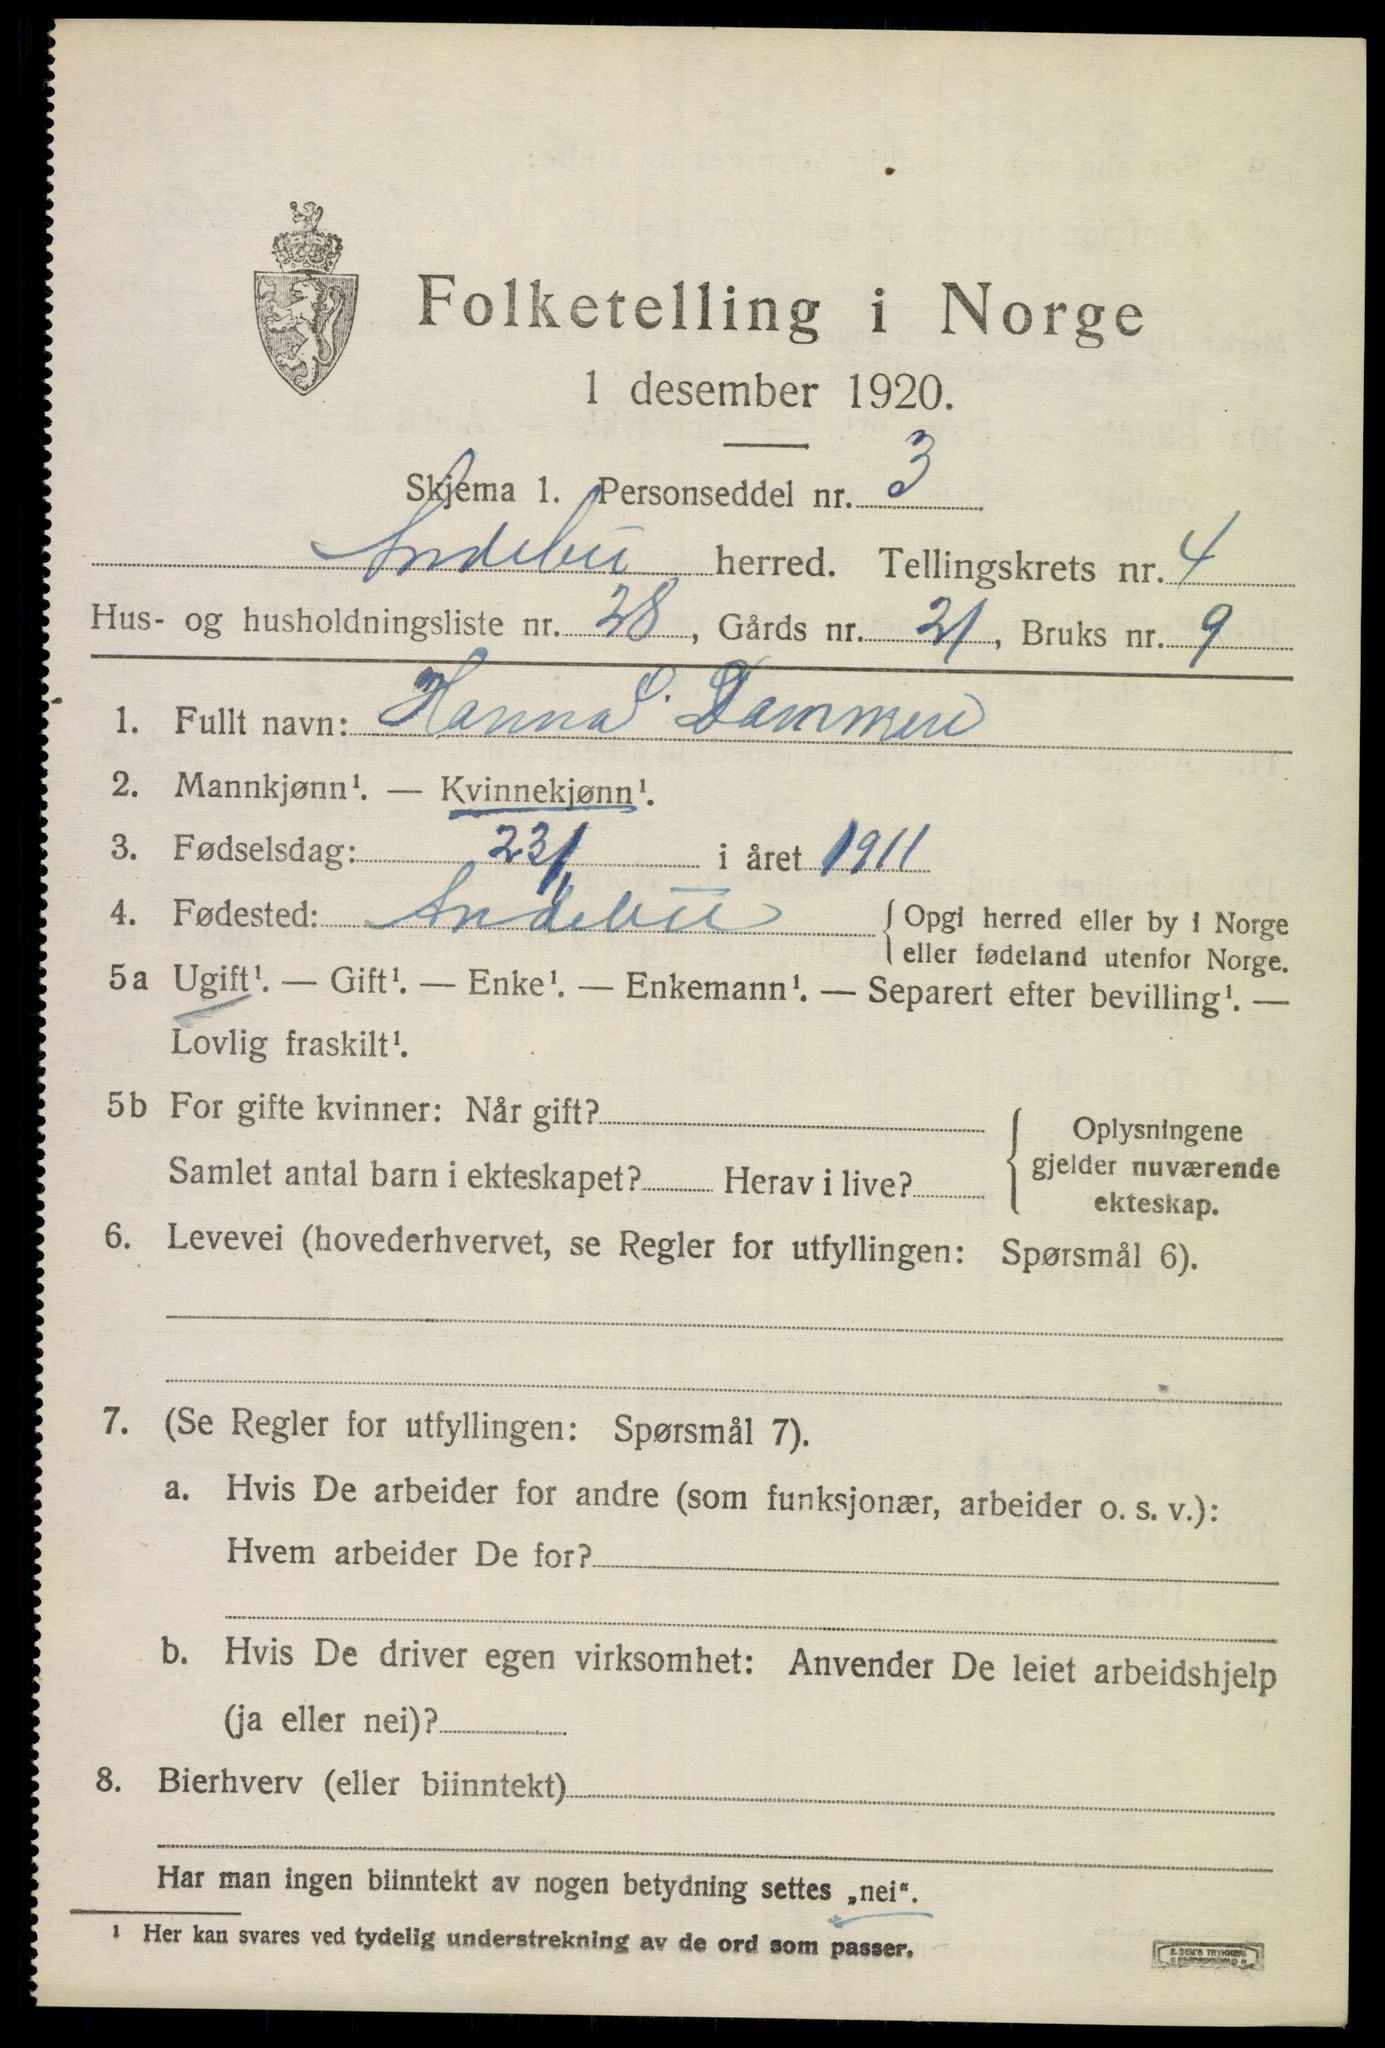 Folketelling i Norge
1 desember 1920.
Skjema 1. Personseddel nr. 3
Andebu herred. Tellingskrets nr. 4
Hus- og husholdningsliste nr. 28, Gårds nr. 21, Bruks nr. 9
1. Fullt navn: Hanna S. Dammen
2. Mannkjønn¹. — Kvinnekjønn¹.
3. Fødselsdag: 23/1 i året 1911
4. Fødested: Andebu { Opgi herred eller by i Norge
eller fødeland utenfor Norge.
5a Ugift¹. — Gift¹. — Enke¹. — Enkemann¹. — Separert efter bevilling¹. —
Lovlig fraskilt¹.
5b For gifte kvinner: Når gift?
Samlet antal barn i ekteskapet? Herav i live?
{ Oplysningene
gjelder nuværende
ekteskap.
6. Levevei (hovederhvervet, se Regler for utfyllingen: Spørsmål 6).
7. (Se Regler for utfyllingen: Spørsmål 7).
a. Hvis De arbeider for andre (som funksjonær, arbeider o. s. v.):
Hvem arbeider De for?
b. Hvis De driver egen virksomhet: Anvender De leiet arbeidshjelp
(ja eller nei)?
8. Bierhverv (eller biinntekt)
Har man ingen biinntekt av nogen betydning settes „nei“.
¹ Her kan svares ved tydelig understrekning av de ord som passer.